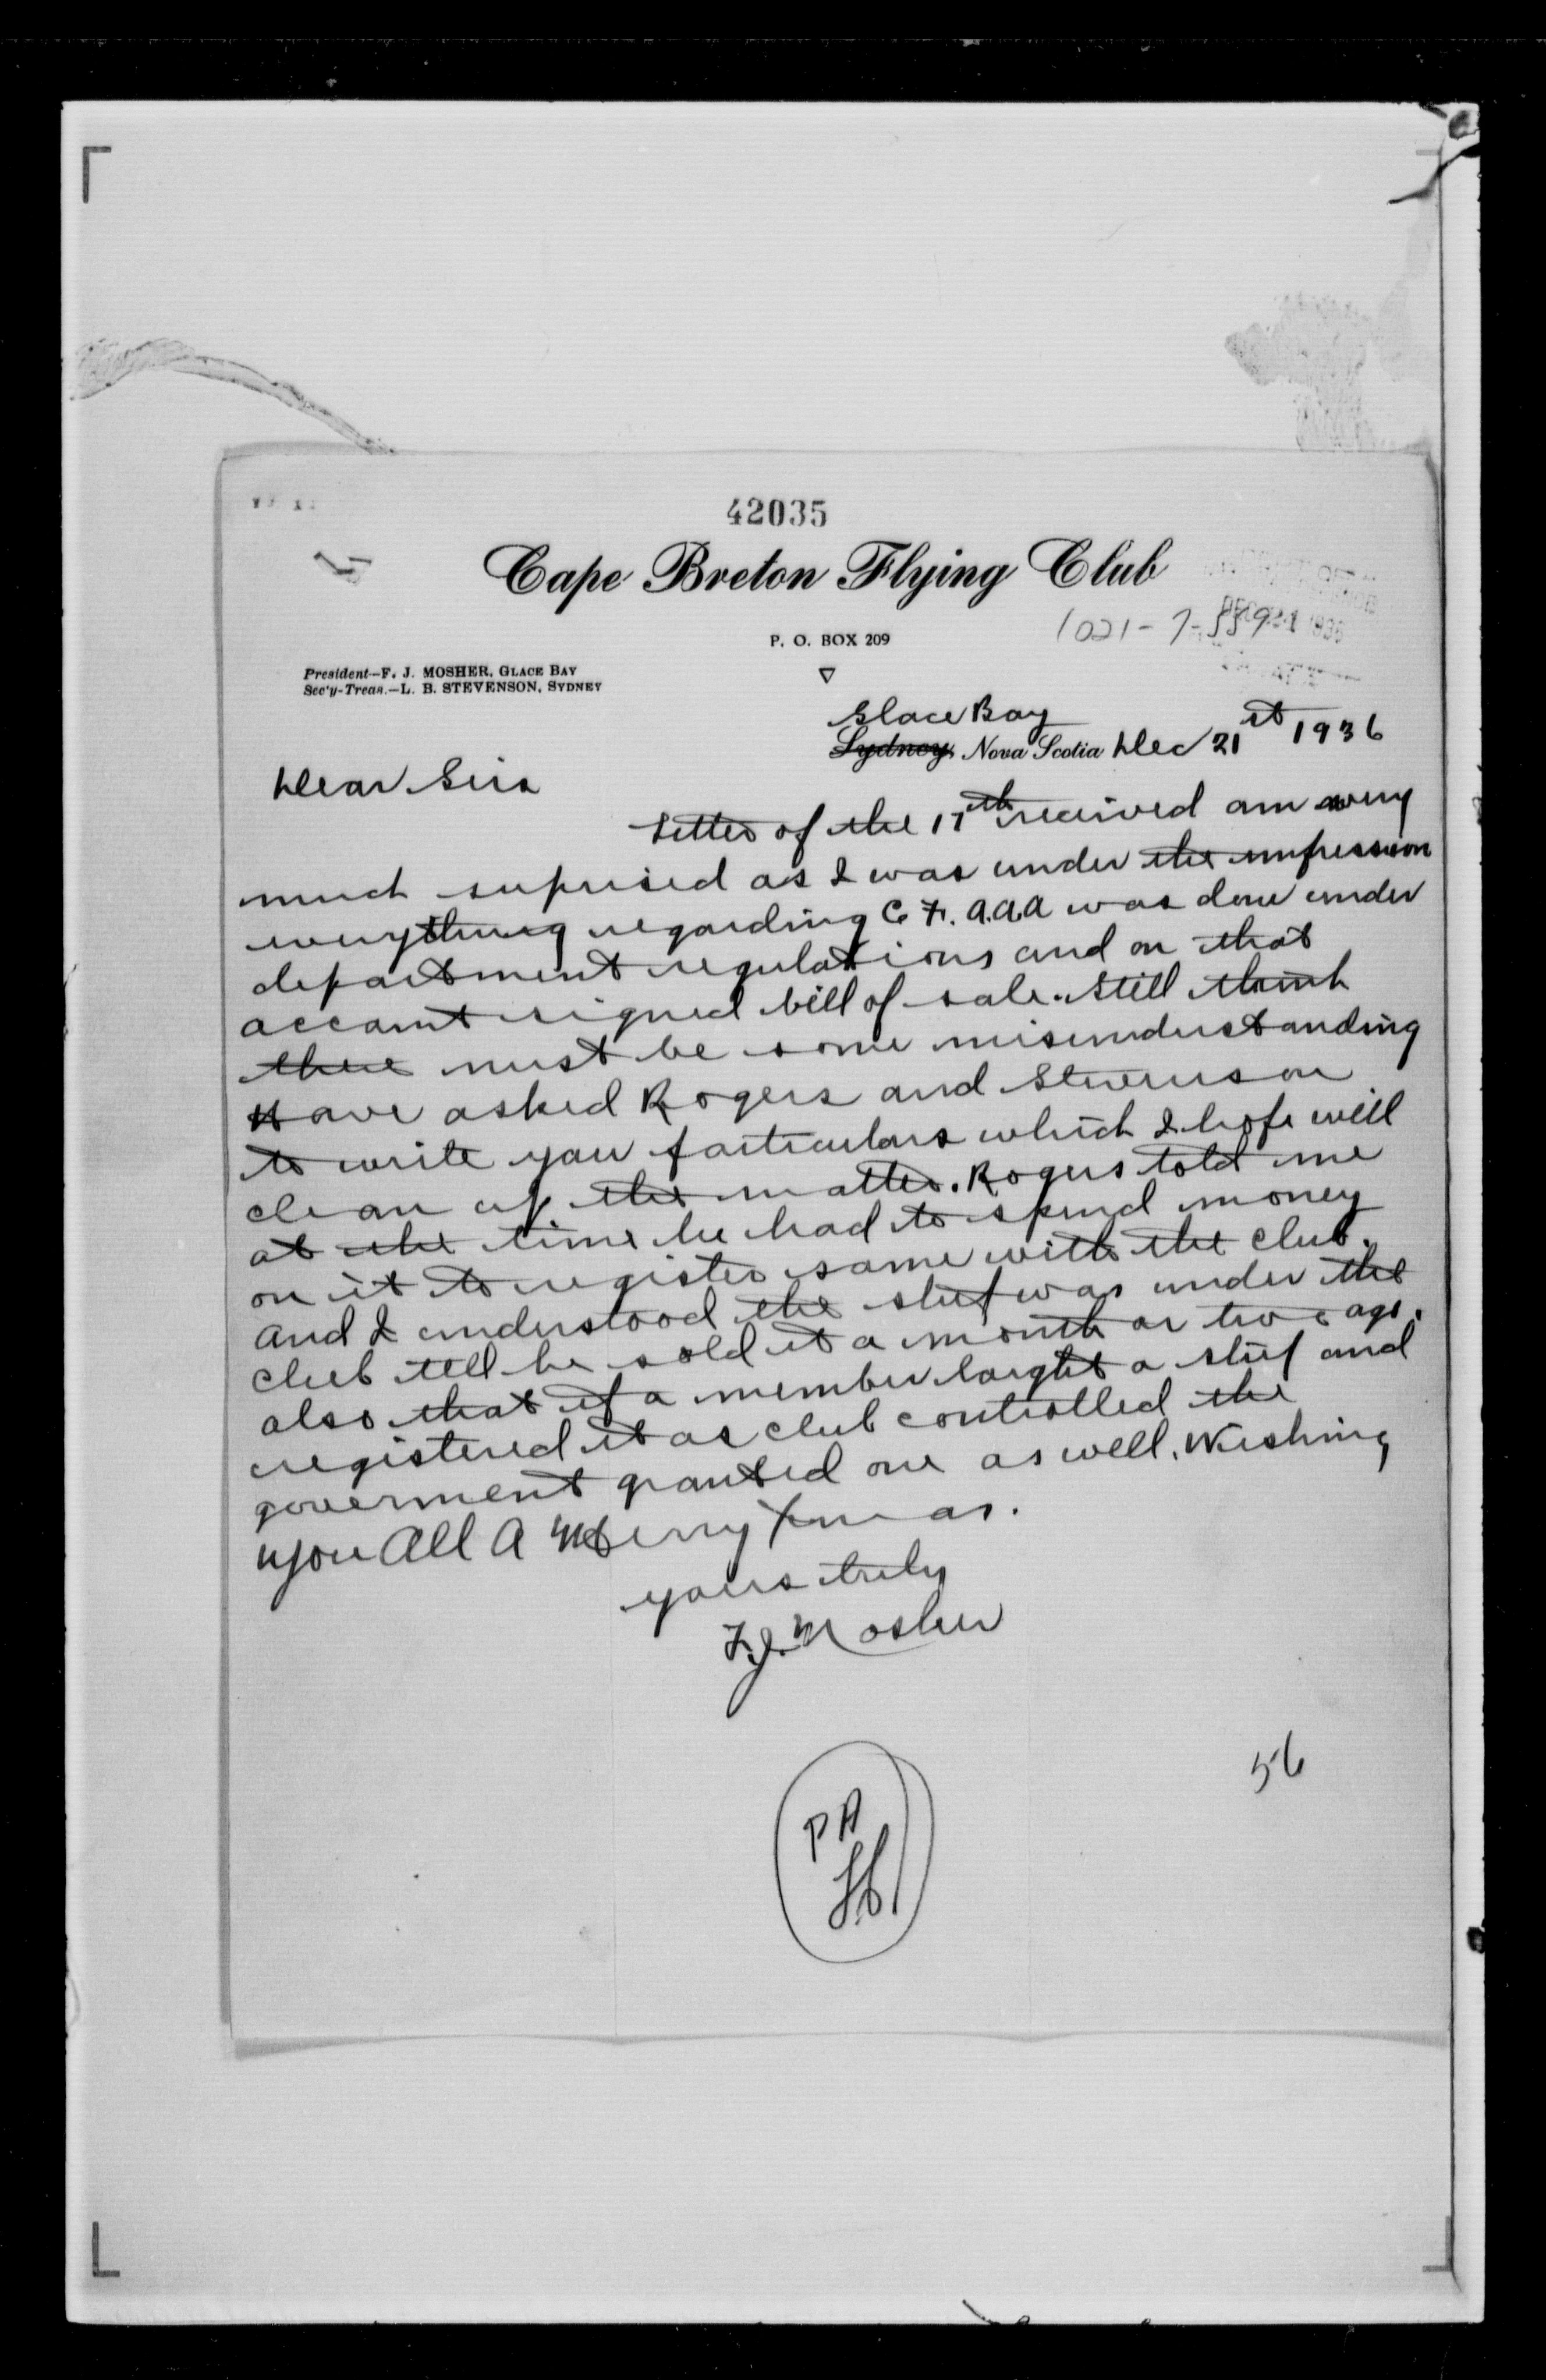 42035
Cape Breton Flying Club
1021-7-559
P. O. BOX 209
President—F. J. MOSHER, GLACE BAY
Sec'y-Treas.—L. B. STEVENSON, SYDNEY
Glace Bay
Sydney, Nova Scotia Dec 21st 1936
Dear Sirs
Letter of the 17th received am very
much suprised as I was under the impression
everything regarding C F. A.A.A was done under
department regulations and on that
account signed bill of sale. Still think
there must be some misunderstanding
Have asked Rogers and Stevenson
to write you particulars which I hope will
clear up the matter. Rogers told me
at the time he had to spend money
on it to register same with the club.
and I understood the ship was under the
club till he sold it a month or two ago.
also that if a member bought a ship and
registered it as club controlled the
goverment granted one as well. Wishing
you All A Merry Xmas.
yours truly
F.J. Mosher
56
PA